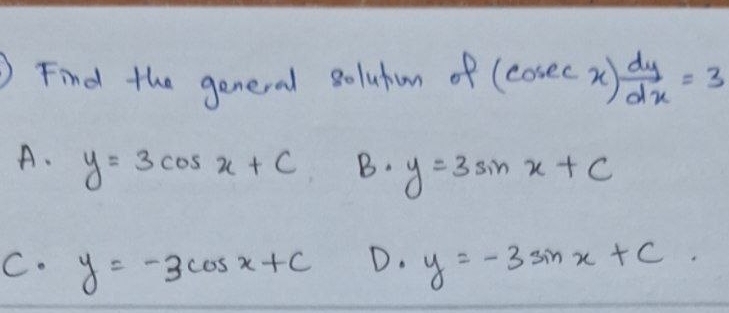 ) Find the general solution of (cosec x) dy/dx = 3
A. y = 3 cos x + C B. y = 3 sin x + C
C. y = -3 cos x + C D. y = -3 sin x + C.